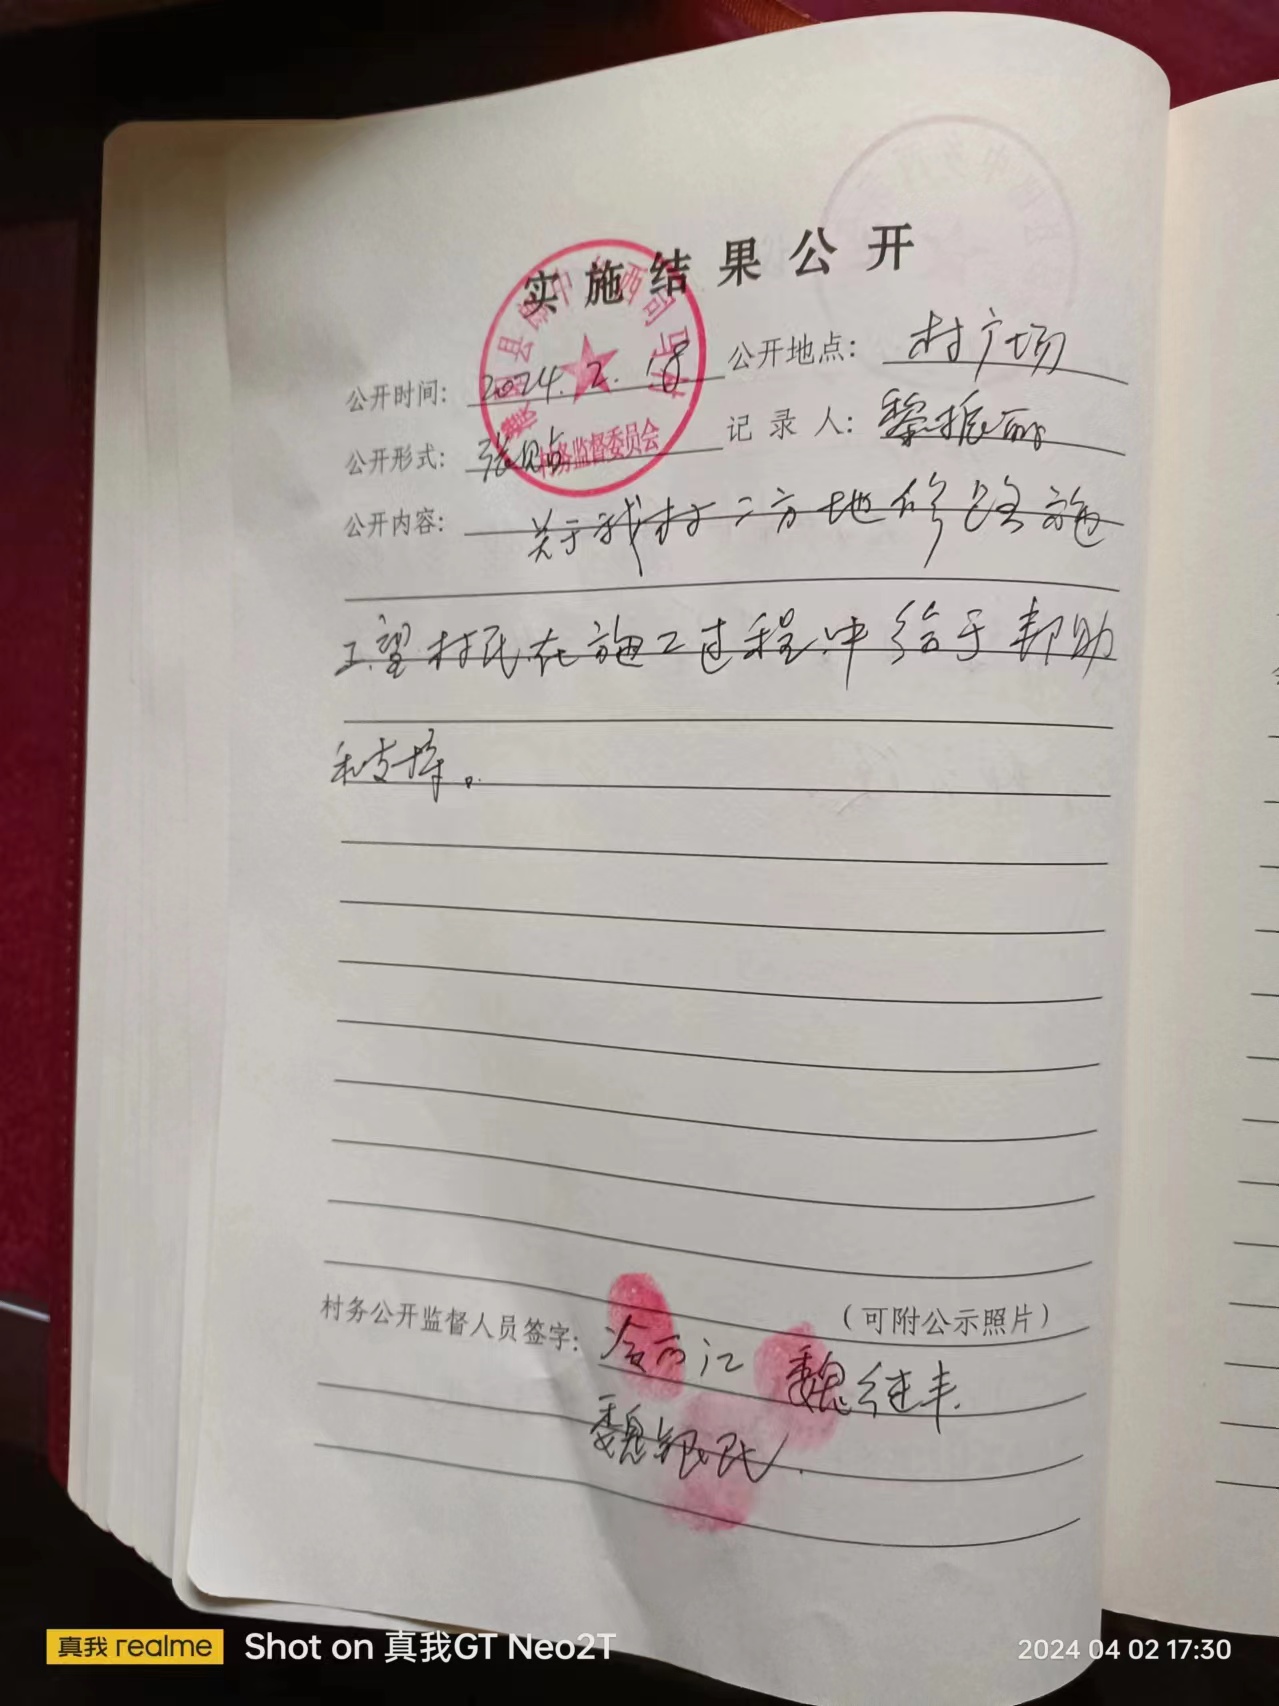 实施结果公开
公开时间: 2024.2.18 公开地点: 村广场
公开形式: 张贴 记录人: 黎振丽
村务监督委员会
公开内容: 关于我村二方地修路施
工.望村民在施工过程中给于帮助
和支持。
(可附公示照片)
村务公开监督人员签字: 魏继丰.
魏银
真我 realme Shot on 真我GT Neo2T 2024 04 02 17:30